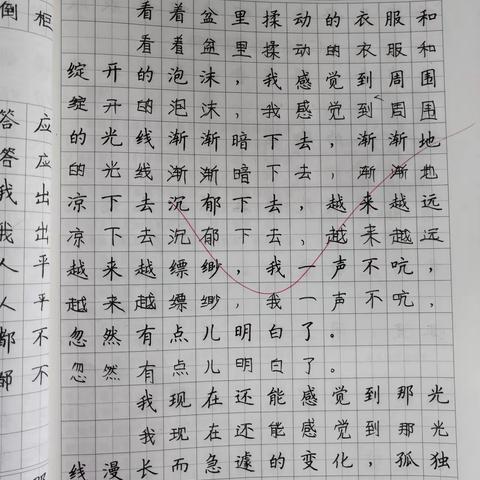 倒柜
答应
答应
我出
我出
人平
人平
都不
都不
看着盆里揉动的衣服和
看着盆里揉动的衣服和
绽开的泡沫，我感觉到周围
绽开的泡沫，我感觉到周围
的光线渐渐暗下去，渐渐地
的光线渐渐暗下去，渐渐地
凉下去沉郁下去，越来越远
凉下去沉郁下去，越来越远
越来越缥缈，我一声不吭，
越来越缥缈，我一声不吭，
忽然有点儿明白了。
忽然有点儿明白了。
我现在还能感觉到那光
我现在还能感觉到那光
线漫长而急遽的变化，孤独